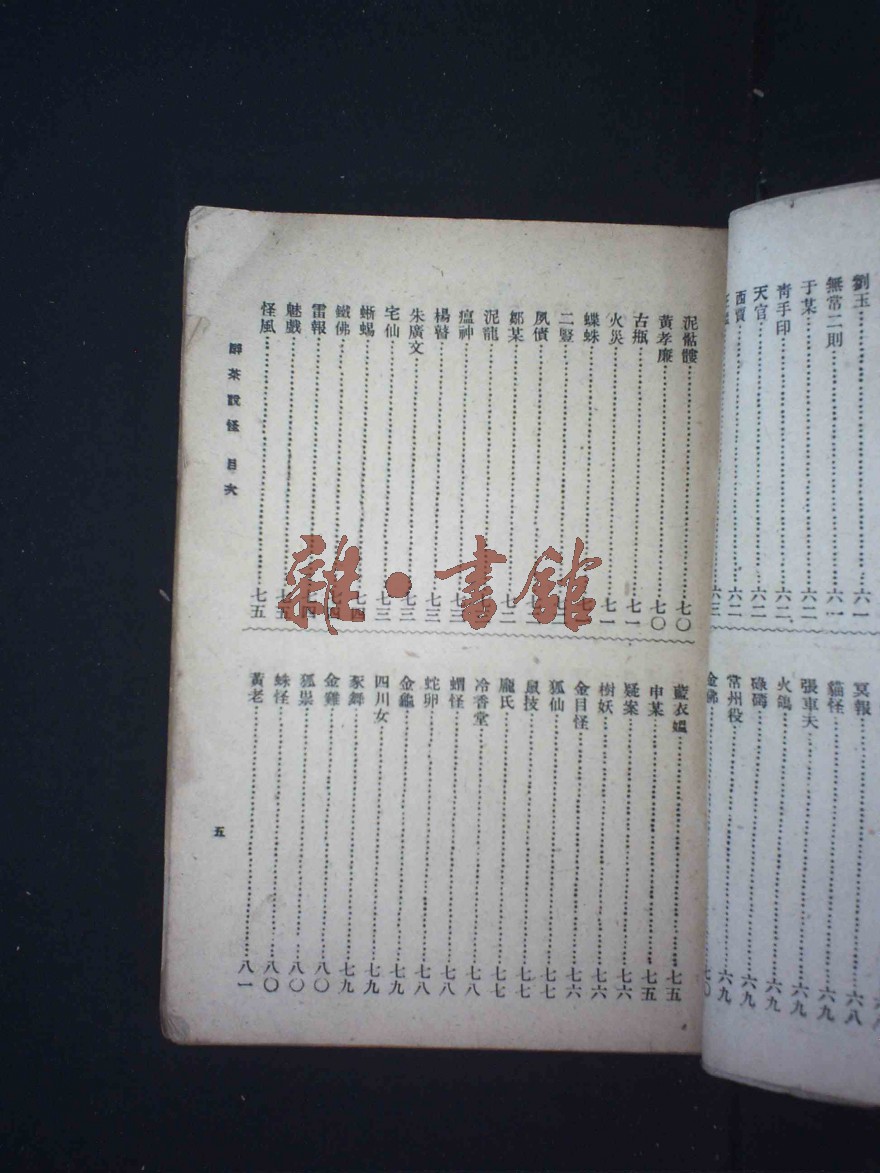 劉玉……六一
無常二則……六一
于某……六二
青手印……六二
天官……六二
西賈……六二
冥報……六八
貓怪……六九
張車夫……六九
火鴿……六九
碌碡……六九
常州役……六九
金佛……七〇
泥骷髏……七〇
黃孝廉……七〇
古瓶……七一
火災……七一
蝶蛛
二豎
夙債
鄒某……七二
泥龍
瘟神
楊瞽……七三
朱廣文……七三
宅仙……七三
蜥蜴……七四
鐵佛……七四
雷報……七四
魅戲……七五
怪風……七五
藍衣媼……七五
申某……七五
疑案……七六
樹妖……七六
金目怪……七六
狐仙……七七
鼠技……七七
龐氏……七七
冷香堂……七八
蝟怪……七八
蛇卵……七八
金龜……七九
四川女……七九
豕舞……七九
金雞……八〇
狐祟……八〇
蛛怪……八〇
黃老……八一
醉茶說怪 目次
五
雜·書館